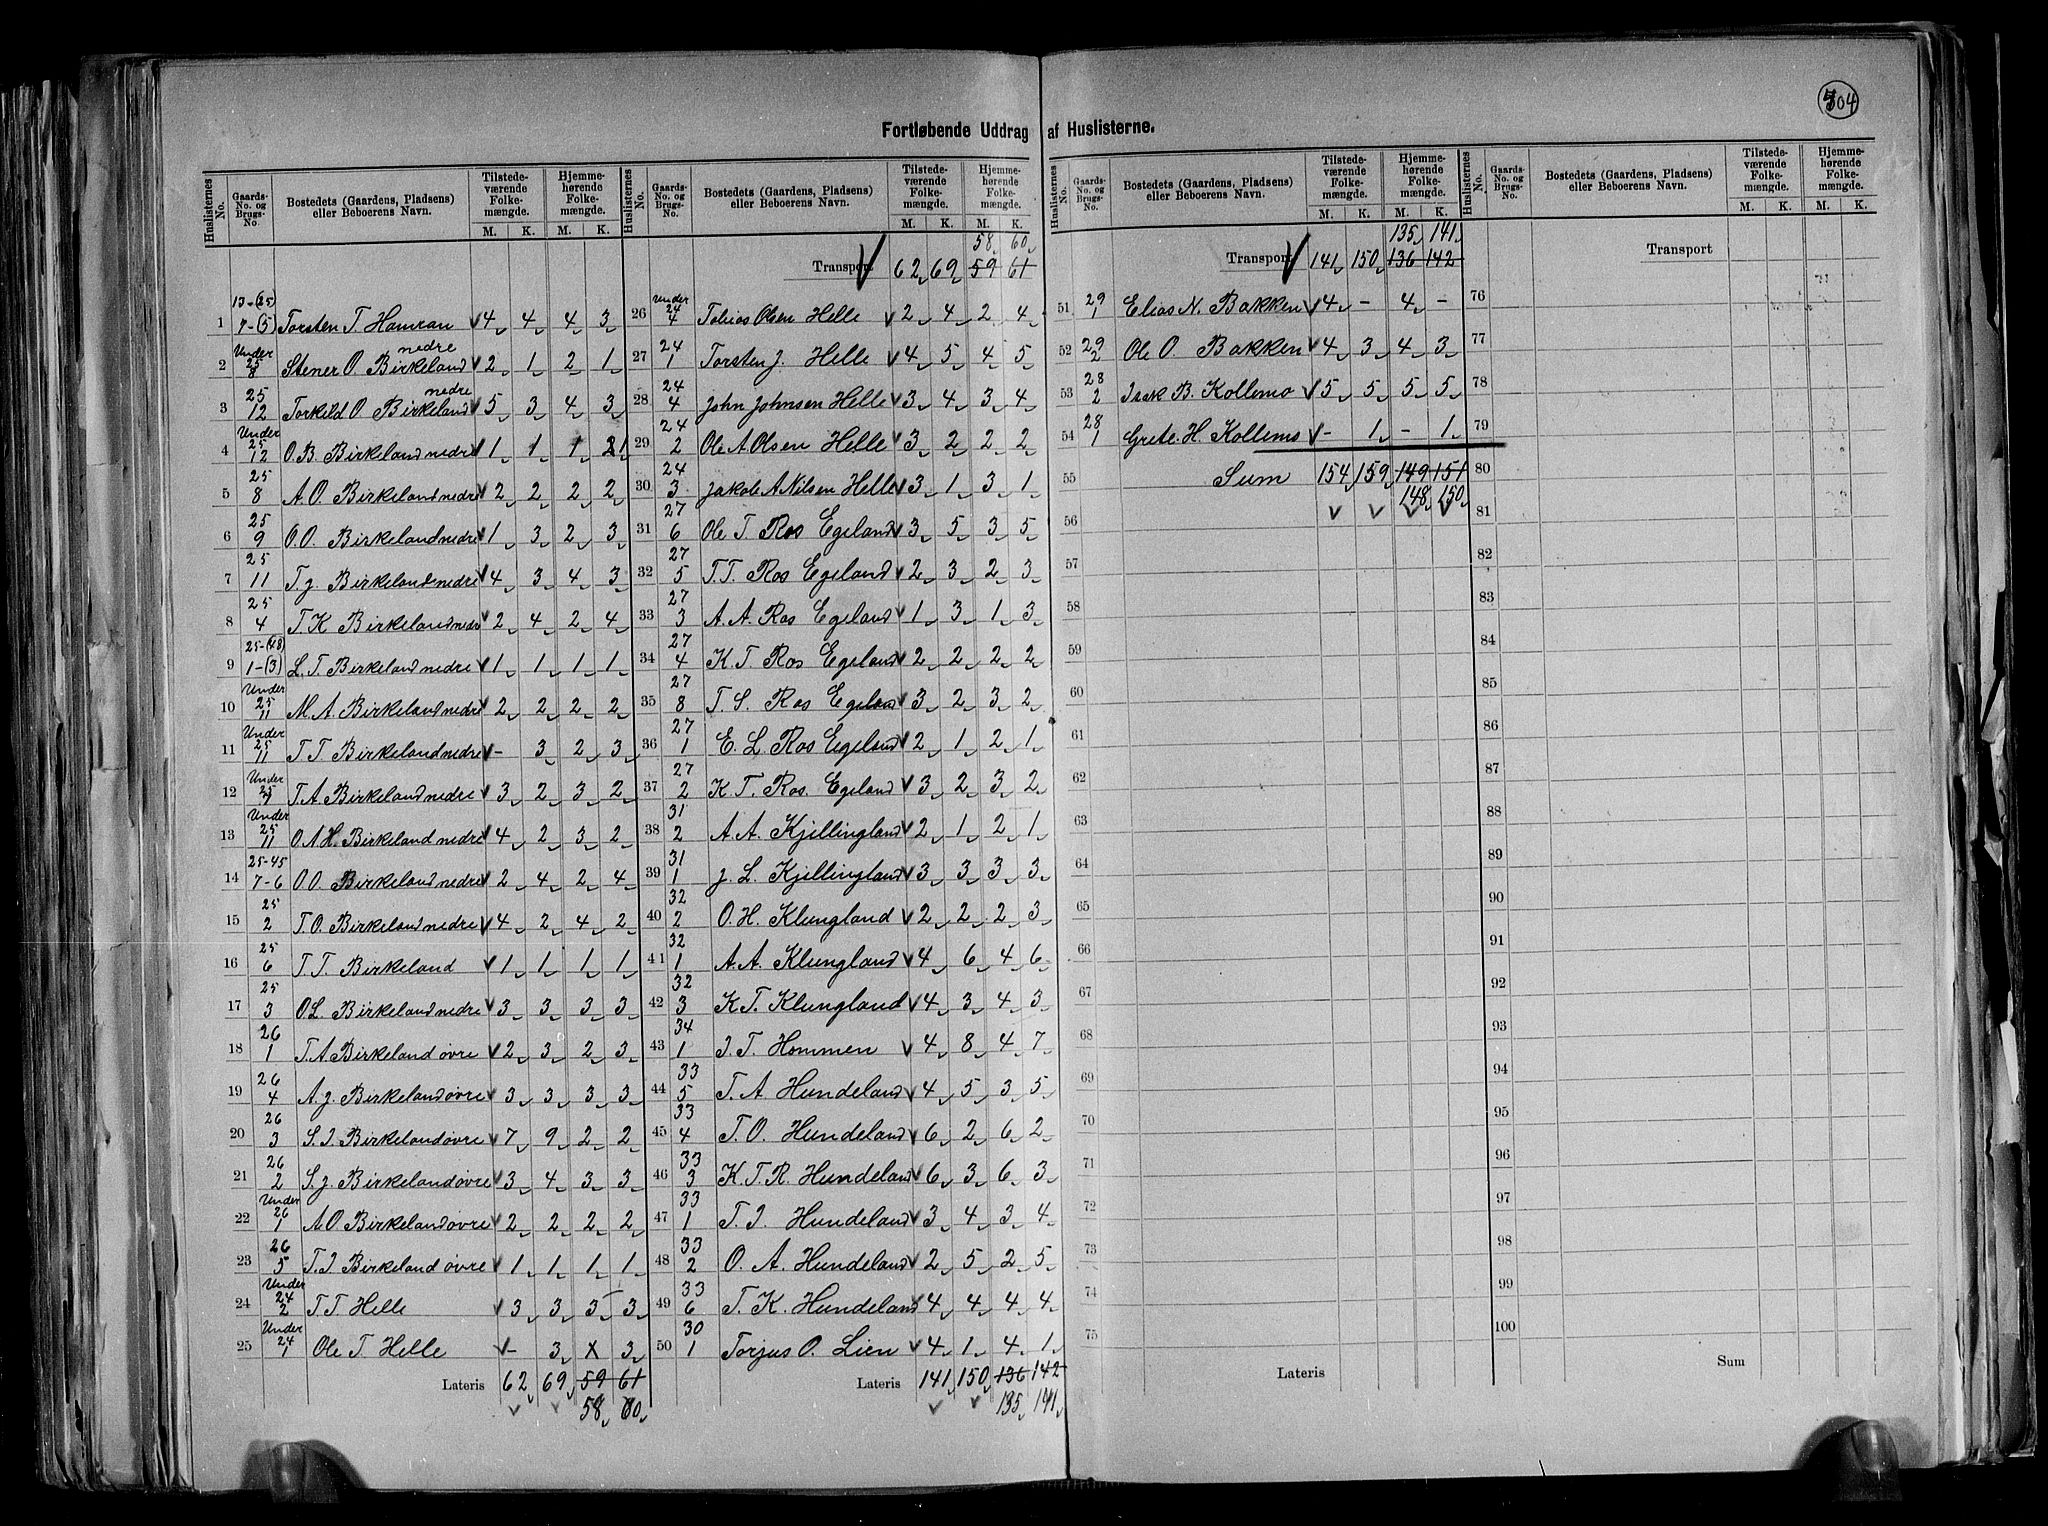 504
Fortløbende Uddrag af Huslisterne.
Huslisternes No. Gaards- No. og Brugs- No. Bostedets (Gaardens, Pladsens) eller Beboerens Navn. Tilstede- værende Folke- mængde. Hjemme- hørende Folke- mængde. M. K. M. K.
1 13-(25) 7-(5) Torsten T Hamran 4 4 4 3
2 Under 25 8 Stener O. Birkeland nedre 2 1 2 1
3 25 12 Torkild O. Birkeland nedre 5 3 4 3
4 Under 25 12 O. B. Birkeland nedre 1 1 1 1
5 25 8 A. O. Birkeland nedre 2 2 2 2
6 25 9 O. O. Birkeland nedre 1 3 2 3
7 25 11 T. J. Birkeland nedre 4 3 4 3
8 25 4 T. K Birkeland nedre 2 4 2 4
9 25-(48) 1-(3) L. T. Birkeland nedre 1 1 1 1
10 Under 25 11 M. A. Birkeland nedre 2 2 2 2
11 Under 25 11 T T. Birkeland nedre - 3 2 3
12 Under 25 T. A Birkeland nedre 3 2 3 2
13 Under 25 11 O A H. Birkeland nedre 4 2 3 2
14 25-45 7-6 O O. Birkeland nedre 2 4 2 4
15 25 2 T. O. Birkeland nedre 4 2 4 2
16 25 6 T T. Birkeland 1 1 1 1
17 25 3 O L. Birkeland nedre 3 3 3 3
18 26 1 T. A. Birkeland øvre 2 3 2 3
19 26 4 A. J. Birkeland øvre 3 3 3 3
20 26 3 S. I. Birkeland øvre 7 9 2 2
21 26 2 S. J. Birkeland øvre 3 4 3 3
22 Under 26 1 A O. Birkeland øvre 2 2 2 2
23 26 5 T. I Birkeland øvre 1 1 1 1
24 Under 24 2 T T. Helle 3 3 3 3
25 Under 24 1 Ole T. Helle - 3 x 3
Lateris 62 69 59 61
58 60
Huslisternes No. Gaards- No. og Brugs- No. Bostedets (Gaardens, Pladsens) eller Beboerens Navn. Tilstede- værende Folke- mængde. Hjemme- hørende Folke- mængde. M. K. M. K.
58 60
Transport 62 69 59 61
26 Under 24 4 Tobias Olsen Helle 2 4 2 4
27 24 1 Torsten J. Helle 4 5 4 5
28 24 4 John Johnsen Helle 3 4 3 4
29 24 2 Ole A Olsen Helle 3 2 2 2
30 24 3 Jakob A Nilsen Helle 3 1 3 1
31 27 6 Ole T. Ros Egeland 3 5 3 5
32 27 5 T. T. Ros Egeland 2 3 2 3
33 27 3 A. A. Ros Egeland 1 3 1 3
34 27 4 K. T. Ros Egeland 2 2 2 2
35 27 8 T. S. Ros Egeland 3 2 3 2
36 27 1 E. L. Ros Egeland 2 1 2 1
37 27 2 K T. Ros. Egeland 3 2 3 2
38 31 2 A. A. Kjellingland 2 1 2 1
39 31 1 J. L. Kjellingland 3 3 3 3
40 32 2 O. H. Klungland 2 2 2 3
41 32 1 A. A. Klungland 4 6 4 6
42 32 3 K T. Klungland 4 3 4 3
43 34 1 I. T. Hommen 4 8 4 7
44 33 5 T. A. Hundeland 4 5 3 5
45 33 4 T. O. Hundeland 6 2 6 2
46 33 3 K. T. R. Hundeland 6 3 6 3
47 33 1 T. I. Hundeland 3 4 3 4
48 33 2 O. A. Hundeland 2 5 2 5
49 33 6 T. K. Hundeland 4 4 4 4
50 30 1 Torjus O. Lien 4 1 4 1
Lateris 141 150 136 142
135 141
Huslisternes No. Gaards- No. og Brugs- No. Bostedets (Gaardens, Pladsens) eller Beboerens Navn. Tilstede- værende Folke- mængde. Hjemme- hørende Folke- mængde. M. K. M. K.
135 141
Transport 141 150 136 142
51 29 1 Elias N. Bakken 4 - 4 -
52 29 2 Ole O. Bakken 4 3 4 3
53 28 2 Isak B. Kollemo 5 5 5 5
54 28 1 Grete. H. Kollemo - 1 - 1
55 Sum 154 159 149 151
148 150
56
57
58
59
60
61
62
63
64
65
66
67
68
69
70
71
72
73
74
75
Lateris
Huslisternes No. Gaards- No. og Brugs- No. Bostedets (Gaardens, Pladsens) eller Beboerens Navn. Tilstede- værende Folke- mængde. Hjemme- hørende Folke- mængde. M. K. M. K.
Transport
76
77
78
79
80
81
82
83
84
85
86
87
88
89
90
91
92
93
94
95
96
97
98
99
100
Sum